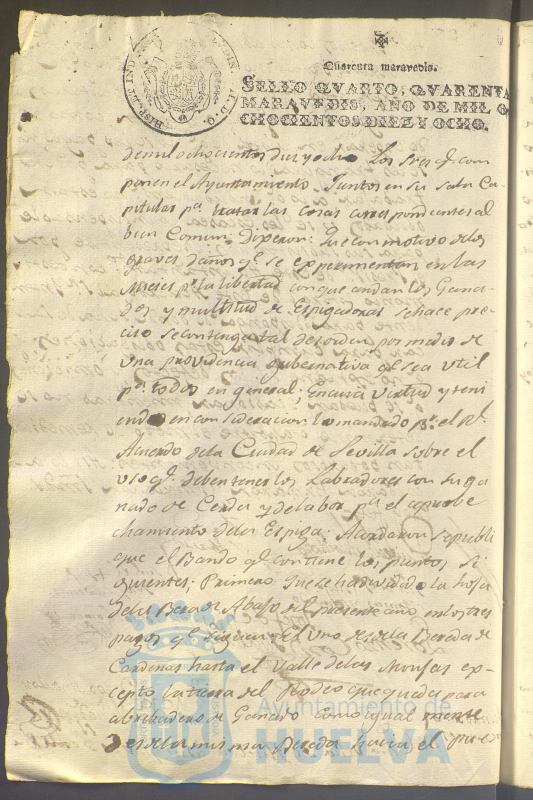 Quarenta maravedis.
SELLO QVARTO, QVARENTA
MARAVEDIS, AÑO DE MIL O
CHOCIENTOS DIEZ Y OCHO.
de mil ochocientos diez y ocho Los Sres q.e com
ponen el Ayuntamiento Juntos en su sala Ca-
pitular p.a tratar las cosas correspondientes al
bien Comun: Dixeron: Que con motivo de los
graves daños q.e se experimentan en las
Mieses p.r la libertad con que andan los Gana-
dos y multitud de Espigadoras se hace pre-
ciso se contenga tal desorden por medio de
una providencia gubernativa q.e sea util
p.a todos en general; En cuya virtud y teni
endo en consideracion lo mandado p.r el R.l
Acuerdo de la Ciudad de Sevilla sobre el
uso q.e deben tener los Labradores con su ga
nado de Cerda y de labor p.a el aprobe
chamiento de la Espiga: Acordaron se publi
que el Bando q.e contiene los puntos si
guientes; Primero Que se ha dividido la hoja
de la Bera de Abajo del presente año en los tres
pagos q.e siguen: El uno desde la Bereda de
Cardenas hasta el Valle de las Monjas ex-
cepto la tierra del Rodeo que queda para
abrebadero de Ganado como igual mente
desde la misma Bereda hasta el
Ayuntamiento de
HUELVA